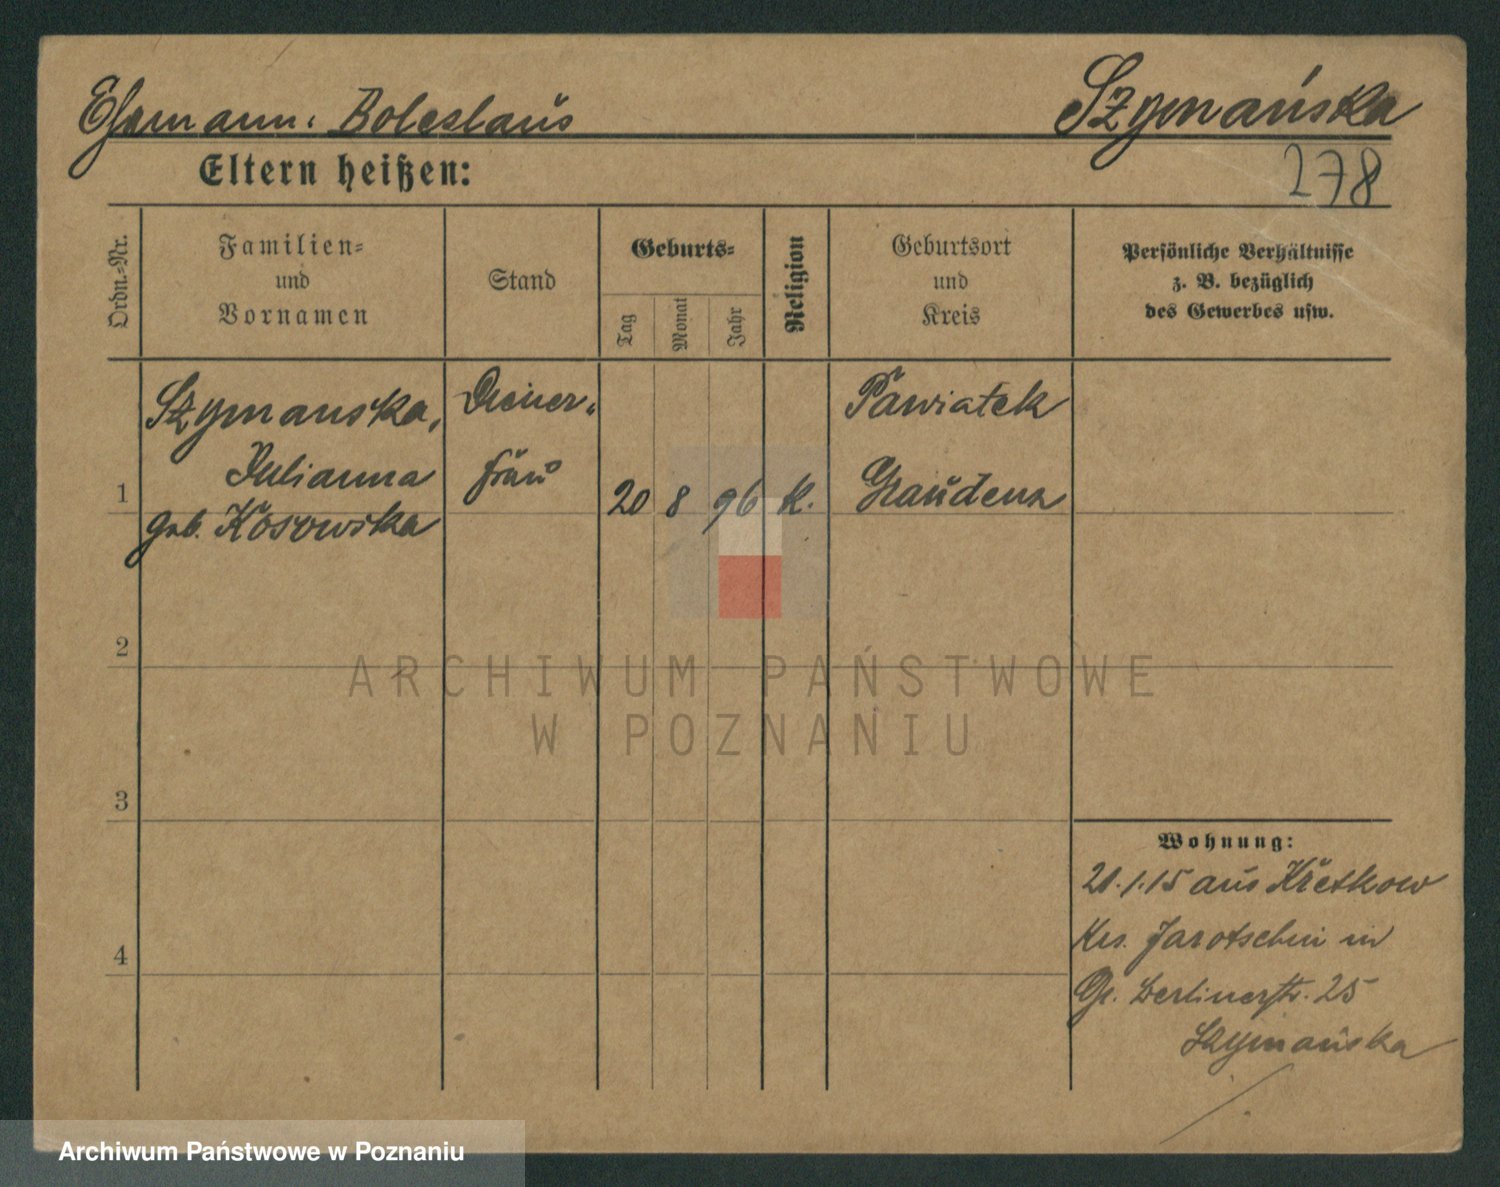 Ehemann: Boleslaus
Szymańska
Eltern heißen:
278
Ordn.=Nr.
Familien=
und
Vornamen
Stand
Geburts=
Tag
Monat
Jahr
Religion
Geburtsort
und
Kreis
Persönliche Verhältnisse
z. B. bezüglich
des Gewerbes usw.
1
Szymanska,
Julianna
geb. Kosowska
Diener-
frau
20 8 96 K.
Pawiatek
Graudenz
2
3
4
Wohnung:
21.1.15 aus
Krs. Jarotschin in
Gr. Berlinerstr. 25
Szymańska
ARCHIWUM PAŃSTWOWE
W POZNANIU
Archiwum Państwowe w Poznaniu